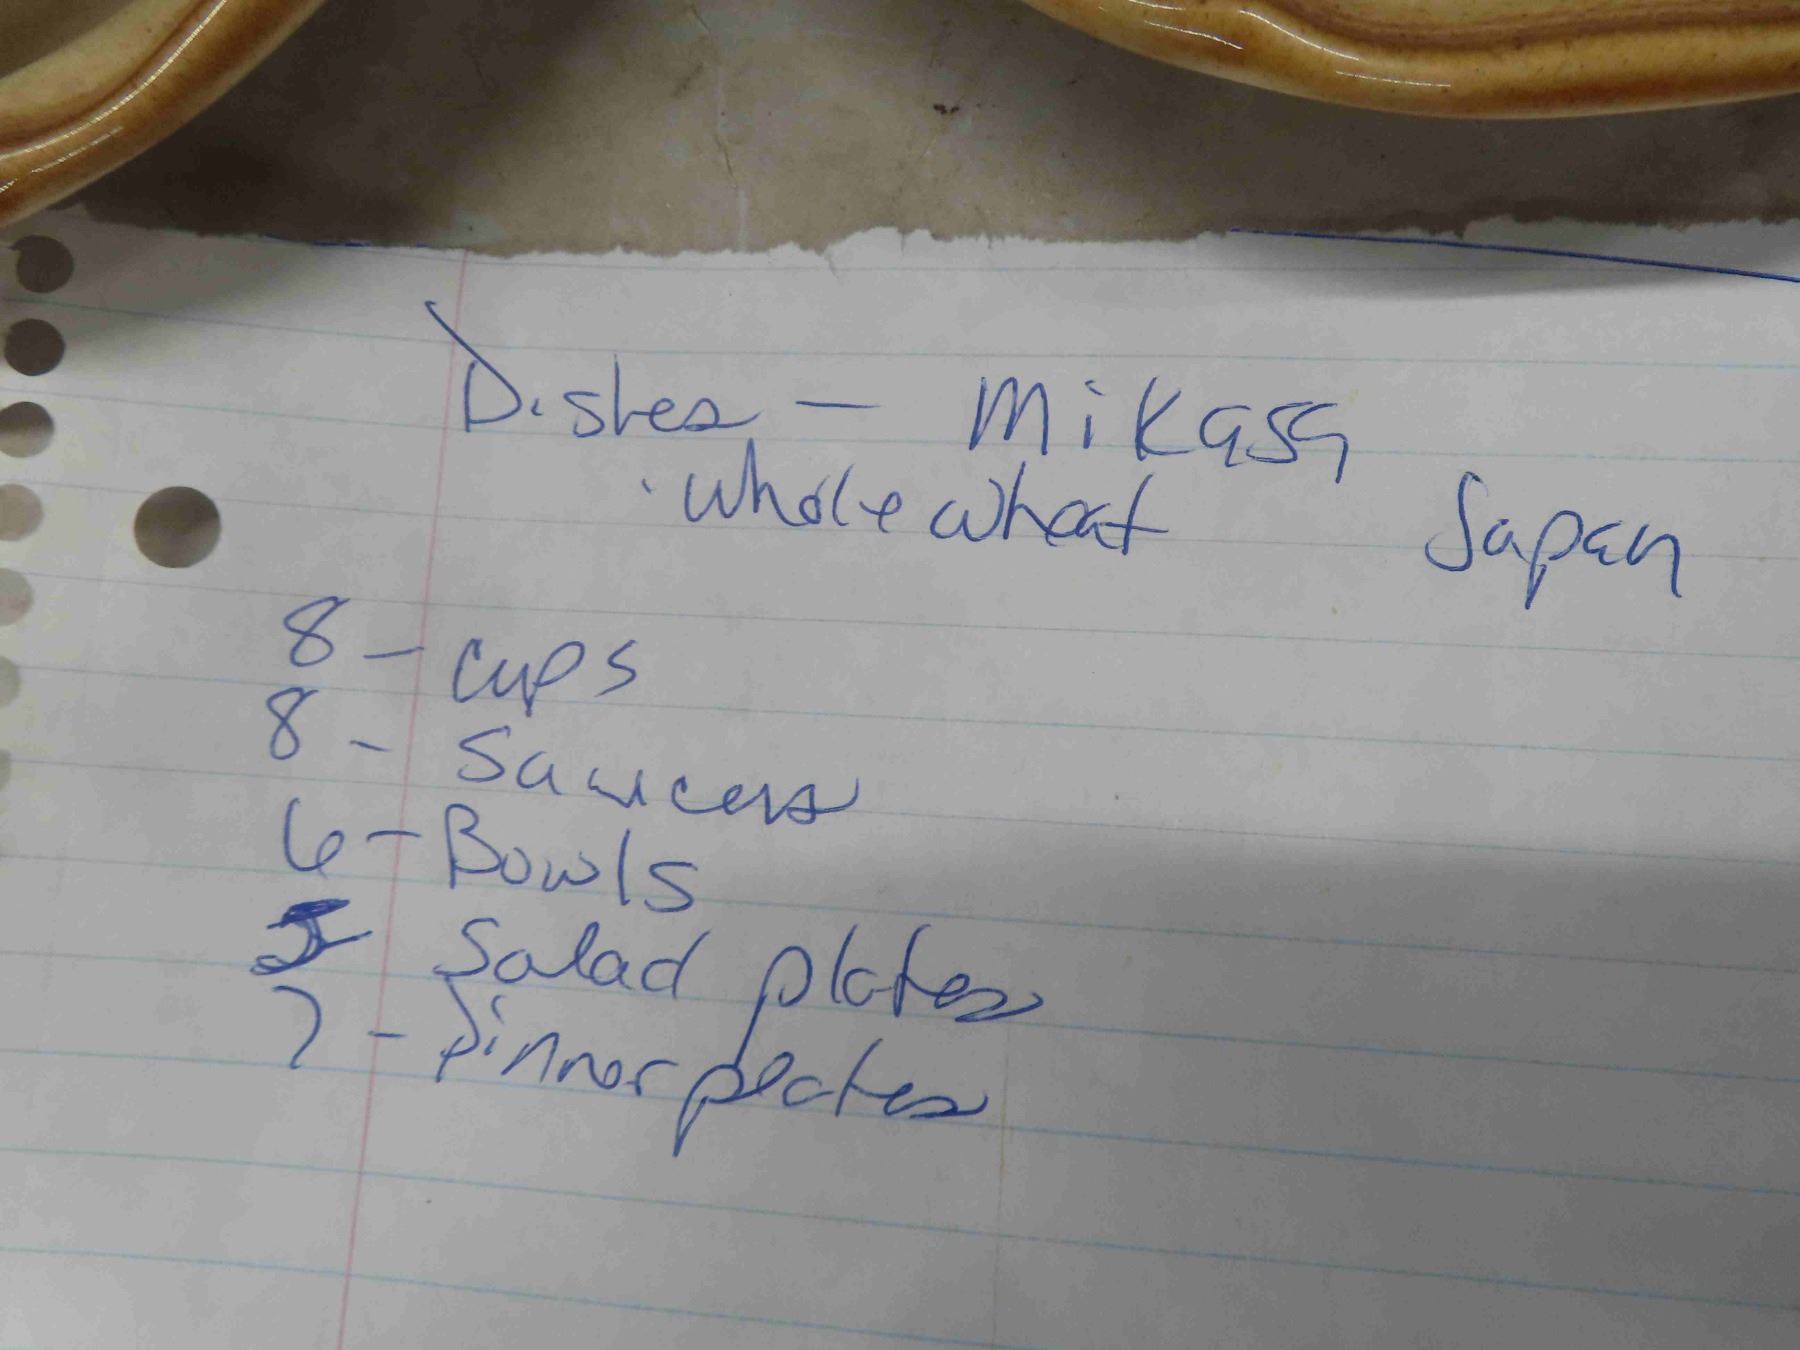 Dishes - Mikasa
whole wheat Japan
8 - cups
8 - Saucers
6 - Bowls
Salad plates
7 - Dinner plates